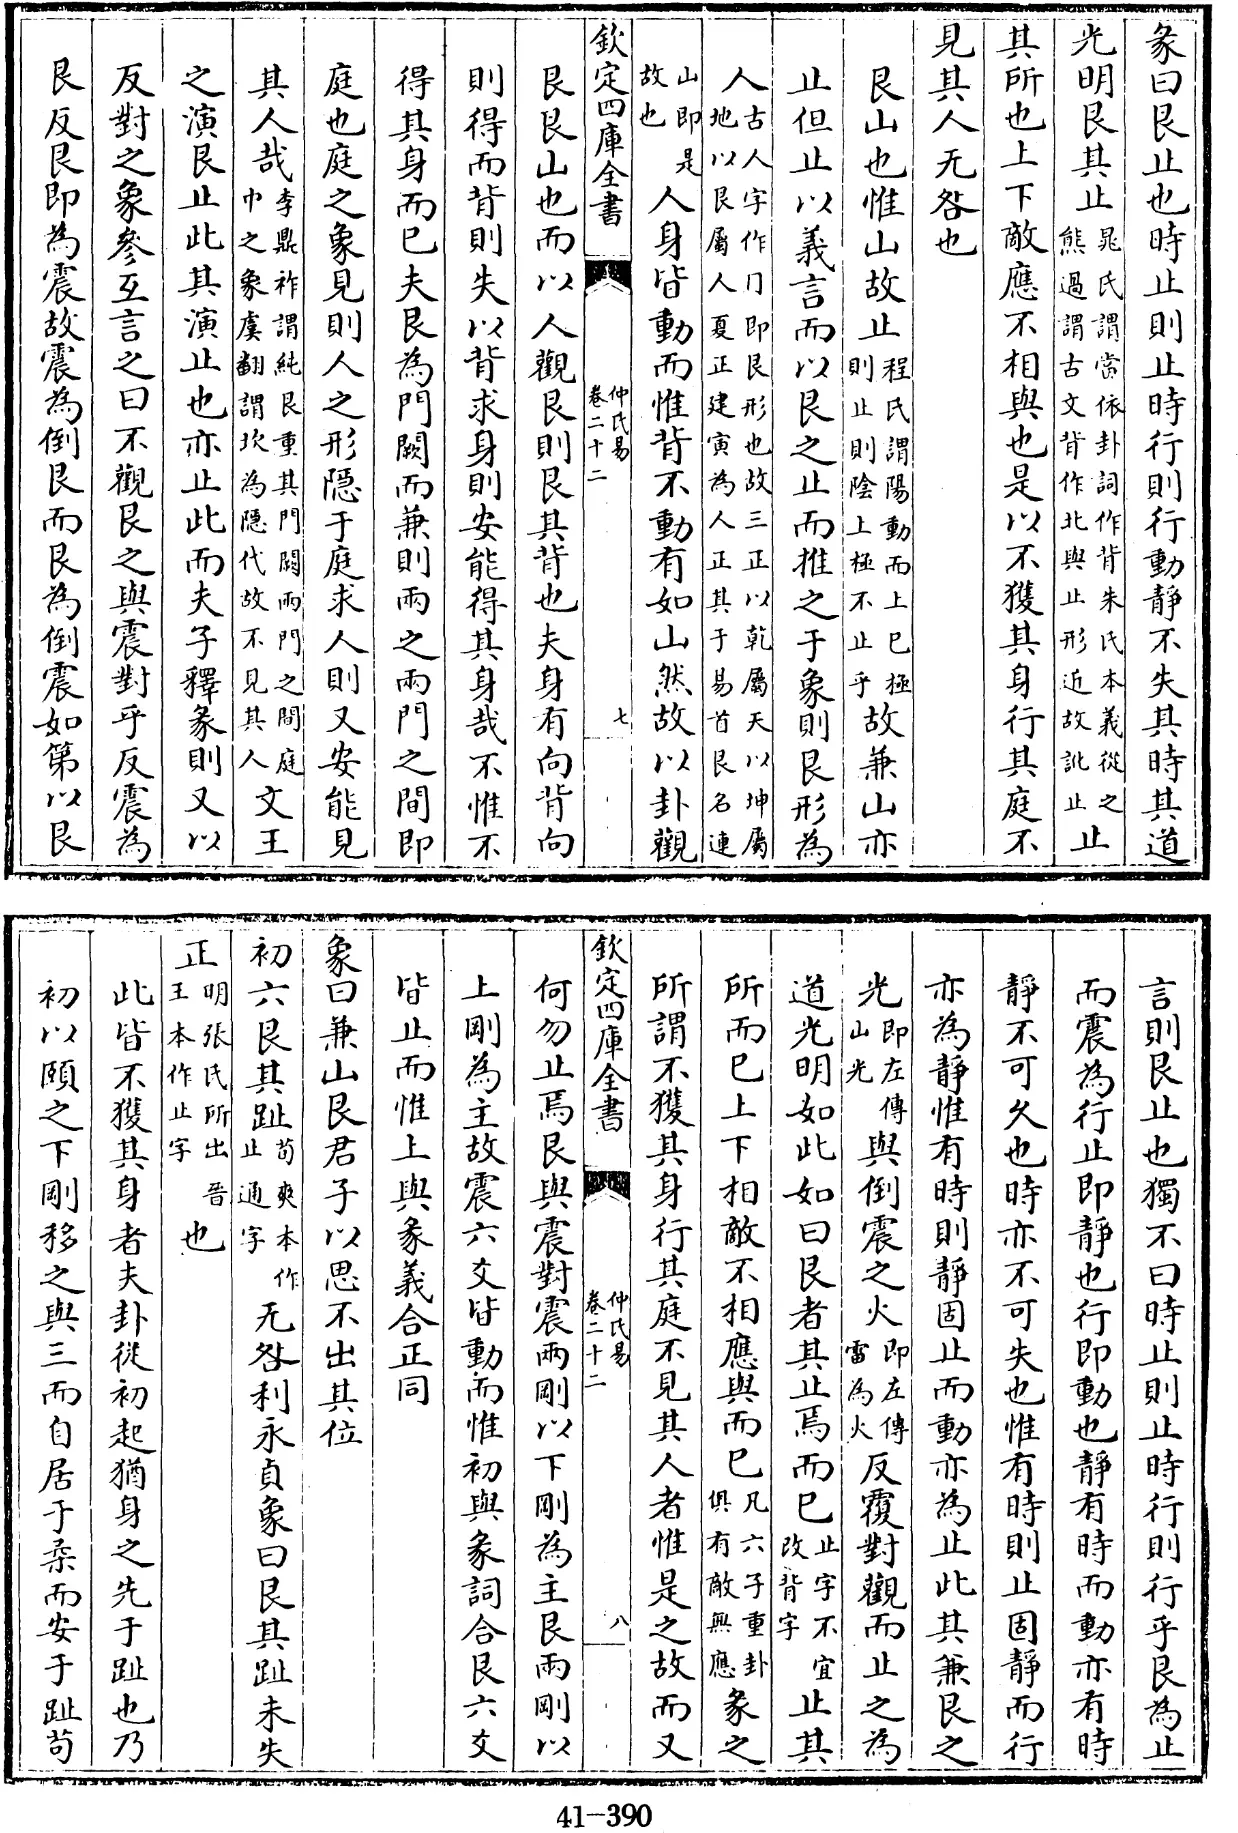 彖曰艮止也時止則止時行則行動靜不失其時其道
光明艮其止晁氏謂當依卦詞作背朱氏本義從之熊過謂古文背作北與止形近故訛止止
其所也上下敵應不相與也是以不獲其身行其庭不
見其人无咎也
艮山也惟山故止程氏謂陽動而上已極則止止則陰上極不止乎故兼山亦
止但止以義言而以艮之止而推之于象則艮形為
人古人字作㔿即艮形也故三正以乾屬天以坤屬地以艮屬人夏正建寅為人正其于易首艮名連
山即是故也人身皆動而惟背不動有如山然故以卦觀
欽定四庫全書
仲氏易
卷二十二
七
艮艮山也而以人觀艮則艮其背也夫身有向背向
則得而背則失以背求身則安能得其身哉不惟不
得其身而已夫艮為門闕而兼則兩之兩門之間即
庭也庭之象見則人之形隱于庭求人則又安能見
其人哉李鼎祚謂純艮重其門闕兩門之間庭中之象虞翻謂坎為隱伏故不見其人文王
之演艮止此其演止也亦止此而夫子釋彖則又以
反對之象參互言之曰不觀艮之與震對乎反震為
艮反艮即為震故震為倒艮而艮為倒震如第以艮
言則艮止也獨不曰時止則止時行則行乎艮為止
而震為行止即靜也行即動也靜有時而動亦有時
靜不可久也時亦不可失也惟有時則止固靜而行
亦為靜惟有時則靜固止而動亦為止此其兼艮之
光即左傳山光與倒震之火即左傳雷為火反覆對觀而止之為
道光明如此如曰艮者其止焉而已止字不宜改背字止其
所而已上下相敵不相應與而已凡六子重卦俱有敵無應彖之
所謂不獲其身行其庭不見其人者惟是之故而又
欽定四庫全書
仲氏易
卷二十二
八
何勿止焉艮與震對震兩剛以下剛為主艮兩剛以
上剛為主故震六爻皆動而惟初與彖詞合艮六爻
皆止而惟上與彖義合正同
象曰兼山艮君子以思不出其位
初六艮其趾荀爽本作止通字无咎利永貞象曰艮其趾未失
正明張氏所出晉王本作止字也
此皆不獲其身者夫卦從初起猶身之先于趾也乃
初以頤之下剛移之與三而自居于柔而安于趾茍
41-390